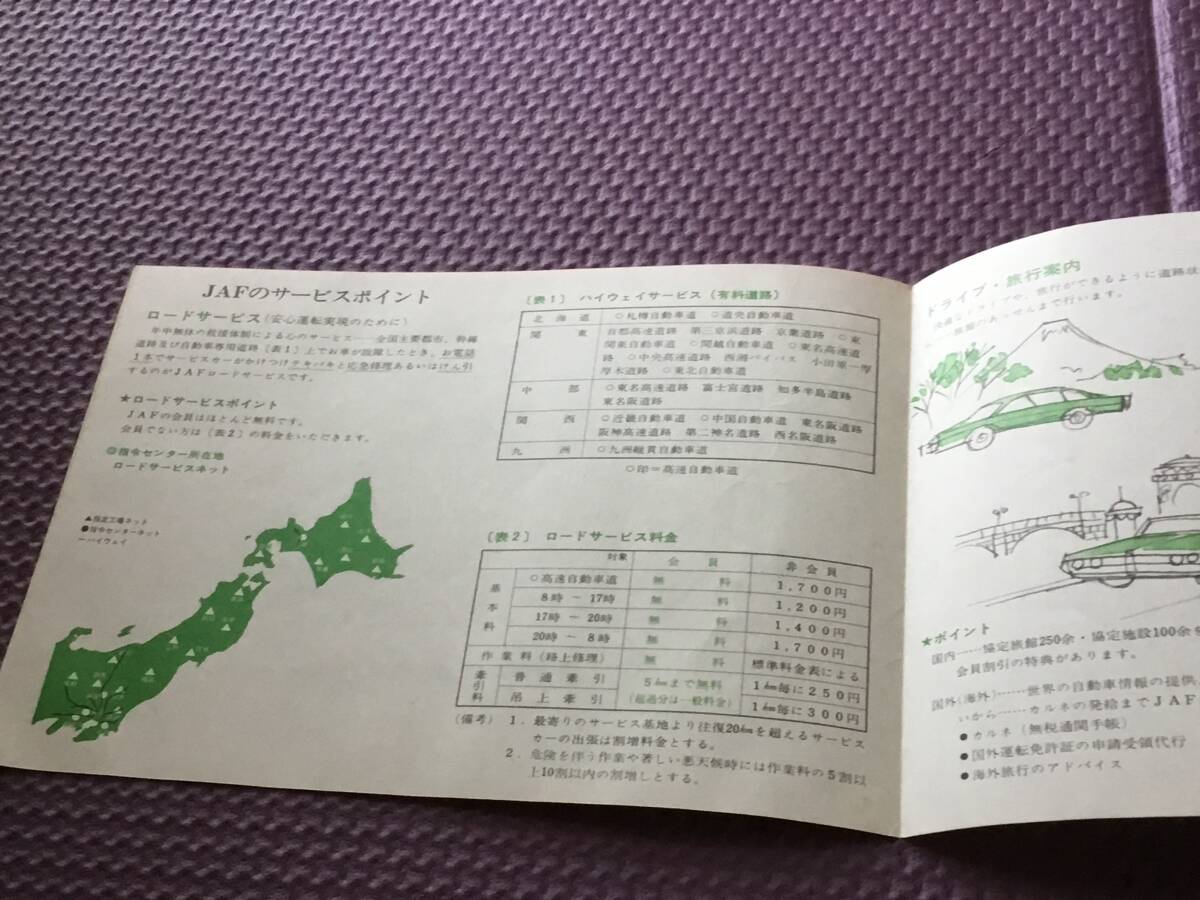 JAFのサービスポイント
ロードサービス(安心運転実現のために)
年中無休の救援体制による心のサービス……全国主要都市、幹線
道路及び自動車専用道路〔表1〕上でお車が故障したとき、お電話
1本でサービスカーがかけつけテキパキと応急修理あるいはけん引
するのがJAFロードサービスです。
★ロードサービスポイント
JAFの会員はほとんど無料です。
会員でない方は〔表2〕の料金をいただきます。
◎指令センター所在地
ロードサービスネット
▲指定工場ネット
●指令センターネット
ーハイウェイ
〔表1〕 ハイウェイサービス(有料道路)
北海道 ○札樽自動車道 ○道央自動車道
関東 首都高速道路 第三京浜道路 京葉道路 ○東
関東自動車道 ○関越自動車道 ○東名高速道
路 ○中央高速道路 西湘バイパス 小田原ー厚
厚木道路 ○東北自動車道
中部 ○東名高速道路 富士宮道路 知多半島道路
東名阪道路
関西 ○近畿自動車道 ○中国自動車道 東名阪道路
阪神高速道路 第二神名道路 西名阪道路
九州 ○九州縦貫自動車道
○印=高速自動車道
〔表2〕 ロードサービス料金
対象 会員 非会員
基本料 ○高速自動車道 無料 1,700円
8時〜17時 無料 1,200円
17時〜20時 無料 1,400円
20時〜8時 無料 1,700円
作業料(路上修理) 無料 標準料金表による
牽引料 普通牽引 5㎞まで無料 1㎞毎に250円
吊上牽引 (超過分は一般料金) 1㎞毎に300円
(備考) 1. 最寄りのサービス基地より往復20㎞を超えるサービス
カーの出張は割増料金とする。
2. 危険を伴う作業や著しい悪天候時には作業料の5割以
上10割以内の割増しとする。
ドライブ・旅行案内
快適なドライブや、旅行ができるように道路状
旅館のあっせんまで行います。
★ポイント
国内……協定旅館250余・協定施設100余
会員割引の特典があります。
国外(海外)……世界の自動車情報の提供
いから……カルネの発給までJAF
●カルネ(無税通関手帳)
●国外運転免許証の申請受領代行
●海外旅行のアドバイス